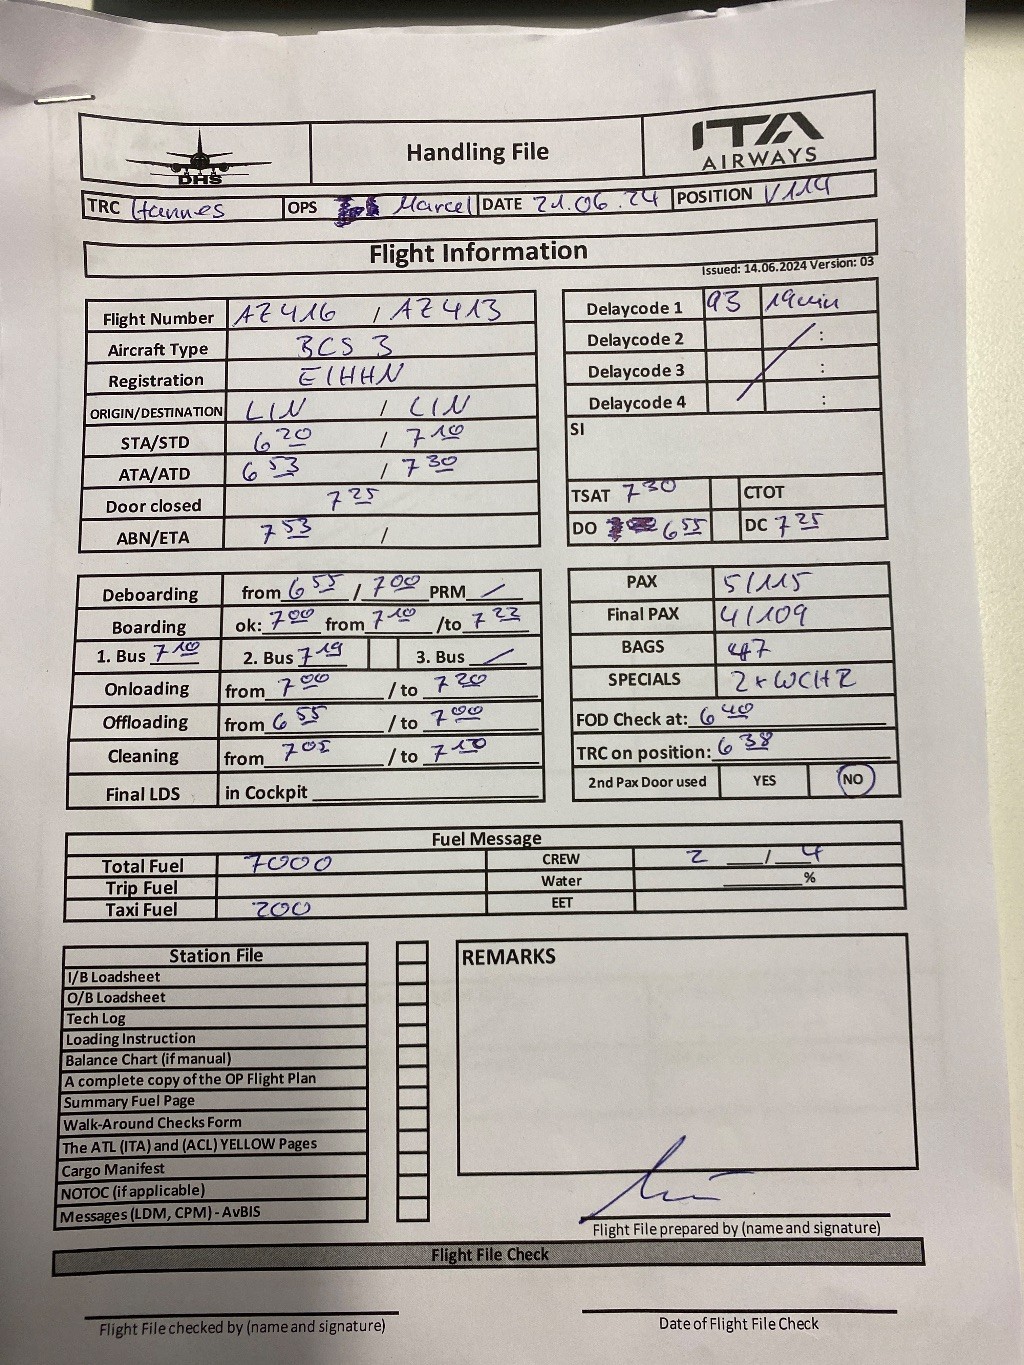 DHS
Handling File
ITA
AIRWAYS
TRC Hannes OPS Marcel DATE 21.06.24 POSITION V114
Flight Information
Issued: 14.06.2024 Version: 03
Flight Number AZ416 / AZ413
Aircraft Type BCS 3
Registration EIHHN
ORIGIN/DESTINATION LIN / LIN
STA/STD 6 20 / 7 10
ATA/ATD 6 53 / 7 30
Door closed 7 25
ABN/ETA 7 53 /
Delaycode 1 93 19min
Delaycode 2 :
Delaycode 3 :
Delaycode 4 :
SI
TSAT 7 30 CTOT
DO 6 55 DC 7 25
Deboarding from 6 55 / 7 00 PRM /
Boarding ok: 7 00 from 7 10 /to 7 23
1. Bus 7 10 2. Bus 7 19 3. Bus /
Onloading from 7 00 / to 7 20
Offloading from 6 55 / to 7 00
Cleaning from 7 05 / to 7 10
Final LDS in Cockpit
PAX 5/115
Final PAX 4/109
BAGS 47
SPECIALS 2x WCHR
FOD Check at: 6 40
TRC on position: 6 38
2nd Pax Door used YES NO
Fuel Message
Total Fuel 7000 CREW 2 / 4
Trip Fuel Water %
Taxi Fuel 200 EET
Station File
I/B Loadsheet
O/B Loadsheet
Tech Log
Loading Instruction
Balance Chart (if manual)
A complete copy of the OP Flight Plan
Summary Fuel Page
Walk-Around Checks Form
The ATL (ITA) and (ACL) YELLOW Pages
Cargo Manifest
NOTOC (if applicable)
Messages (LDM, CPM) - AvBIS
REMARKS
Flight File prepared by (name and signature)
Flight File Check
Flight File checked by (name and signature)
Date of Flight File Check